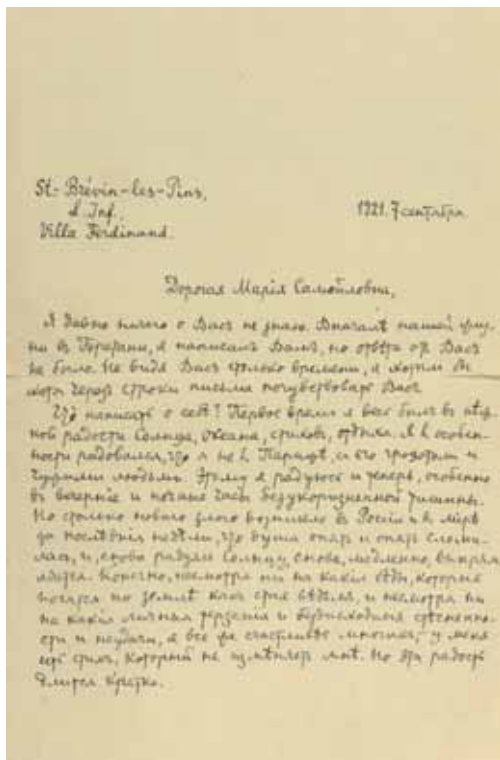 St-Brévin-les-Pins,
L. Inf.
Villa Ferdinand.
1921. 7 сентября
Дорогая Марія Самойловна,
Я давно ничего о Васъ не знаю. Вначалѣ нашей
въ я написалъ Вамъ, но отвѣта отъ Васъ
не было. Не видя Васъ столько времени, я хотѣлъ бы
хоть черезъ строки письма почувствовать Васъ
Что написать о себѣ? Первое время я весь былъ въ
ной радости Солнца, Океана, стиховъ, отдыха. И я особен-
ности радовался, что я не въ Парижѣ, съ его грохотомъ и
чужими людьми. Этому я радуюсь и теперь, особенно
въ вечерніе и ночные часы безукоризненной тишины.
Но столько новаго злого возникло въ Россіи и въ мірѣ
за послѣднія недѣли, что душа опять и опять сломи-
лась, и, снова радуясь Солнцу, снова, медленно, выпрям-
ляется. Конечно, несмотря ни на какія бѣды, которыя
носятся по землѣ какъ стая вѣдьмъ, и несмотря ни
на какія личныя терзанія и безысходныя стѣсненно-
сти и неудачи, я все же счастливѣе многихъ, у меня
есть стихъ, который не измѣняетъ мнѣ. Но эта радость
длится кратко.